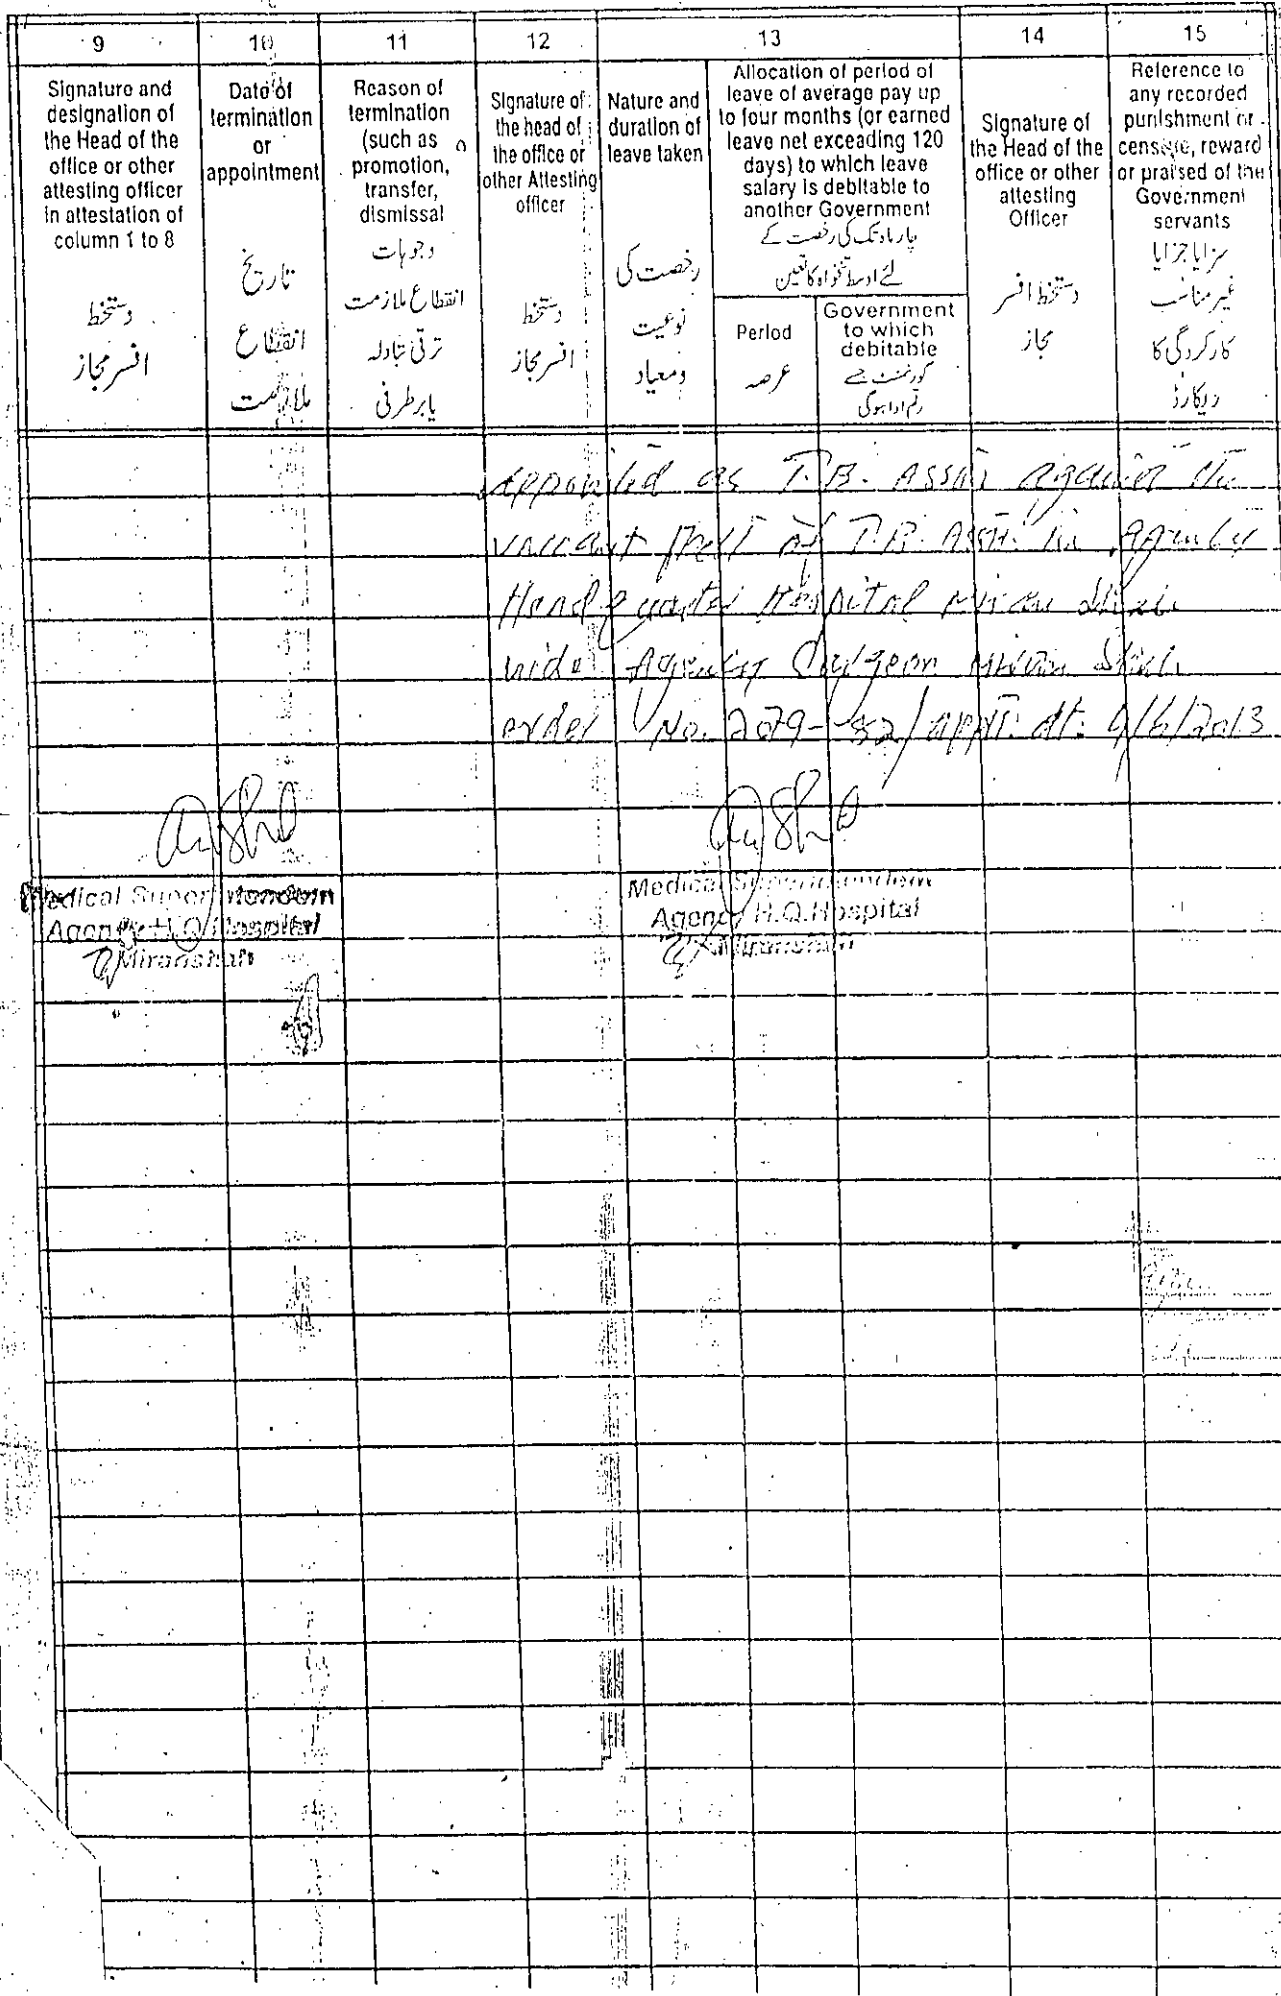 9
10
11
12
13
14
15
Signature and
designation of
the Head of the
office or other
attesting officer
in attestation of
column 1 to 8
دستخط
افسر مجاز
Date of
termination
or
appointment
تاریخ
انقطاع
ملازمت
Reason of
termination
(such as
promotion,
transfer,
dismissal
وجوہات
انقطاع ملازمت
ترقی تبادلہ
یا برطرفی
Signature of
the head of
the office or
other Attesting
officer
دستخط
افسر مجاز
Nature and
duration of
leave taken
رخصت کی
نوعیت
ومعیاد
Allocation of period of
leave of average pay up
to four months (or earned
leave net exceeding 120
days) to which leave
salary is debitable to
another Government
چار ماہ تک کی رخصت کے
لئے اوسط تنخواہ کا تعین
Period
عرصہ
Government
to which
debitable
گورنمنٹ جسے
رقم ادا ہوگی
Signature of
the Head of the
office or other
attesting
Officer
دستخط افسر
مجاز
Reference to
any recorded
punishment or
censure, reward
or praised of the
Government
servants
سزا یا جزا یا
غیر مناسب
کارکردگی کا
ریکارڈ
appointed as T.B. Asstt against the
vaccant post of T.B. Asstt. in Agency
Headquarter Hospital Miran Shah
vide Agency Surgeon Miran Shah
order No. 2079-82/Apptt: dt: 4/6/2013
Medical Superintendent
Agency H.Q. Hospital
Miranshah
Medical Superintendent
Agency H.Q.Hospital
Miranshah